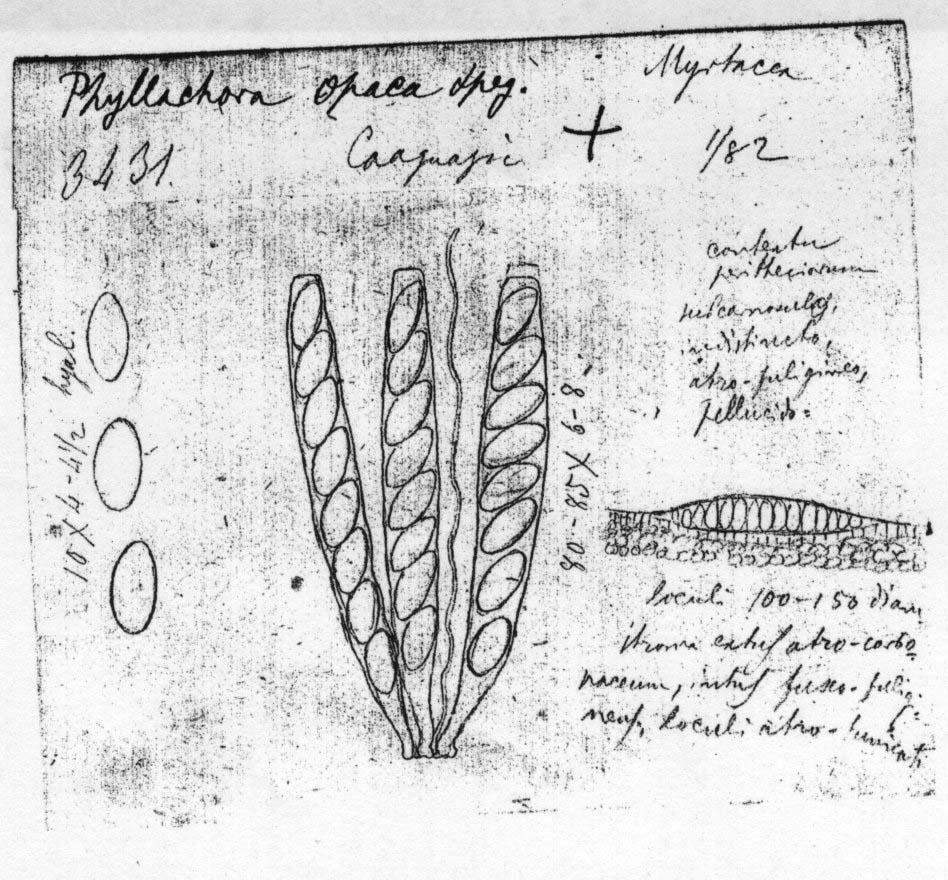 Phyllachora opaca Speg.
Myrtacea
3431.
Caaguazú
1/82
contextu
peritheciorum
subcarnosulo,
indistincto,
atro-fuligineo,
pellucido=
10 X 4-4 1/2 hyal.
80-85 X 6-8
loculi 100-150 diam
stroma extus atro-carbo
naceum, intus fusco-fulig=
neus, loculi atro-